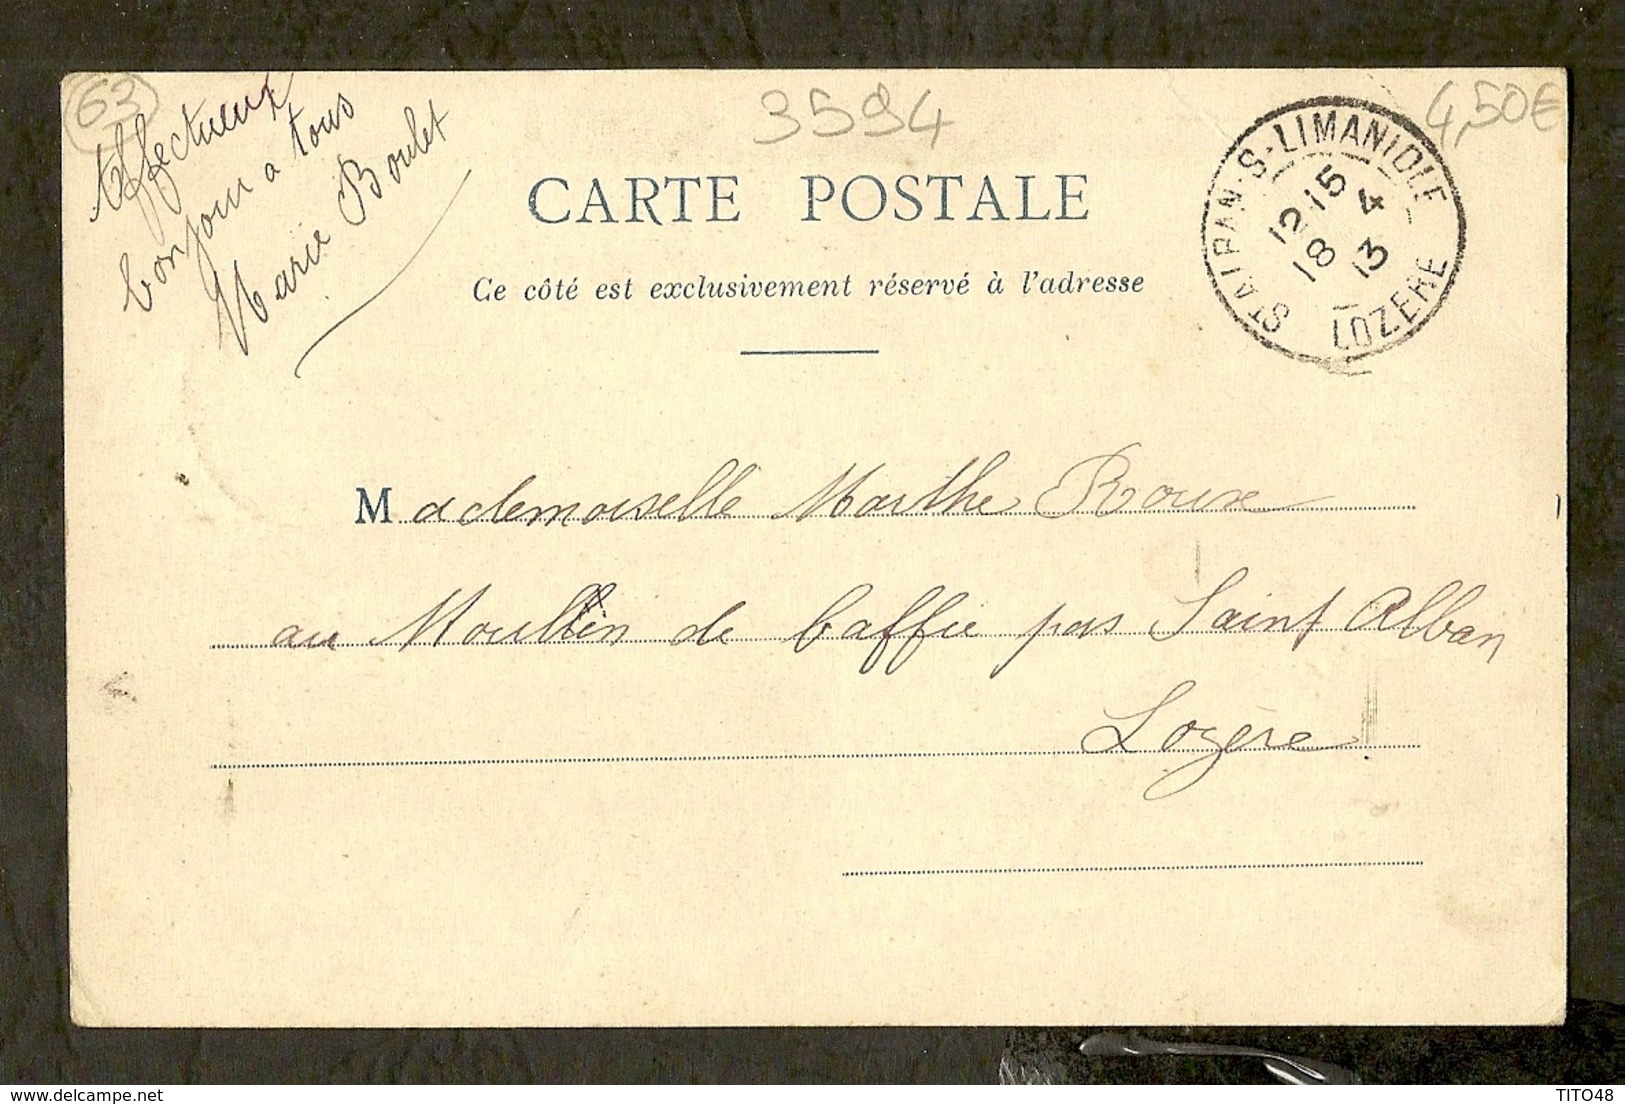 63
3594
4,50€
Affectueux
bonjour a tous
Marie Boulet
CARTE POSTALE
Ce côté est exclusivement réservé à l'adresse
ST ALBAN-S-LIMAGNOLE
12·15
18 4
13
LOZERE
Mademoiselle Marthe Roux
au Moullin de baffie pas Saint Alban
Lozère
TITO48